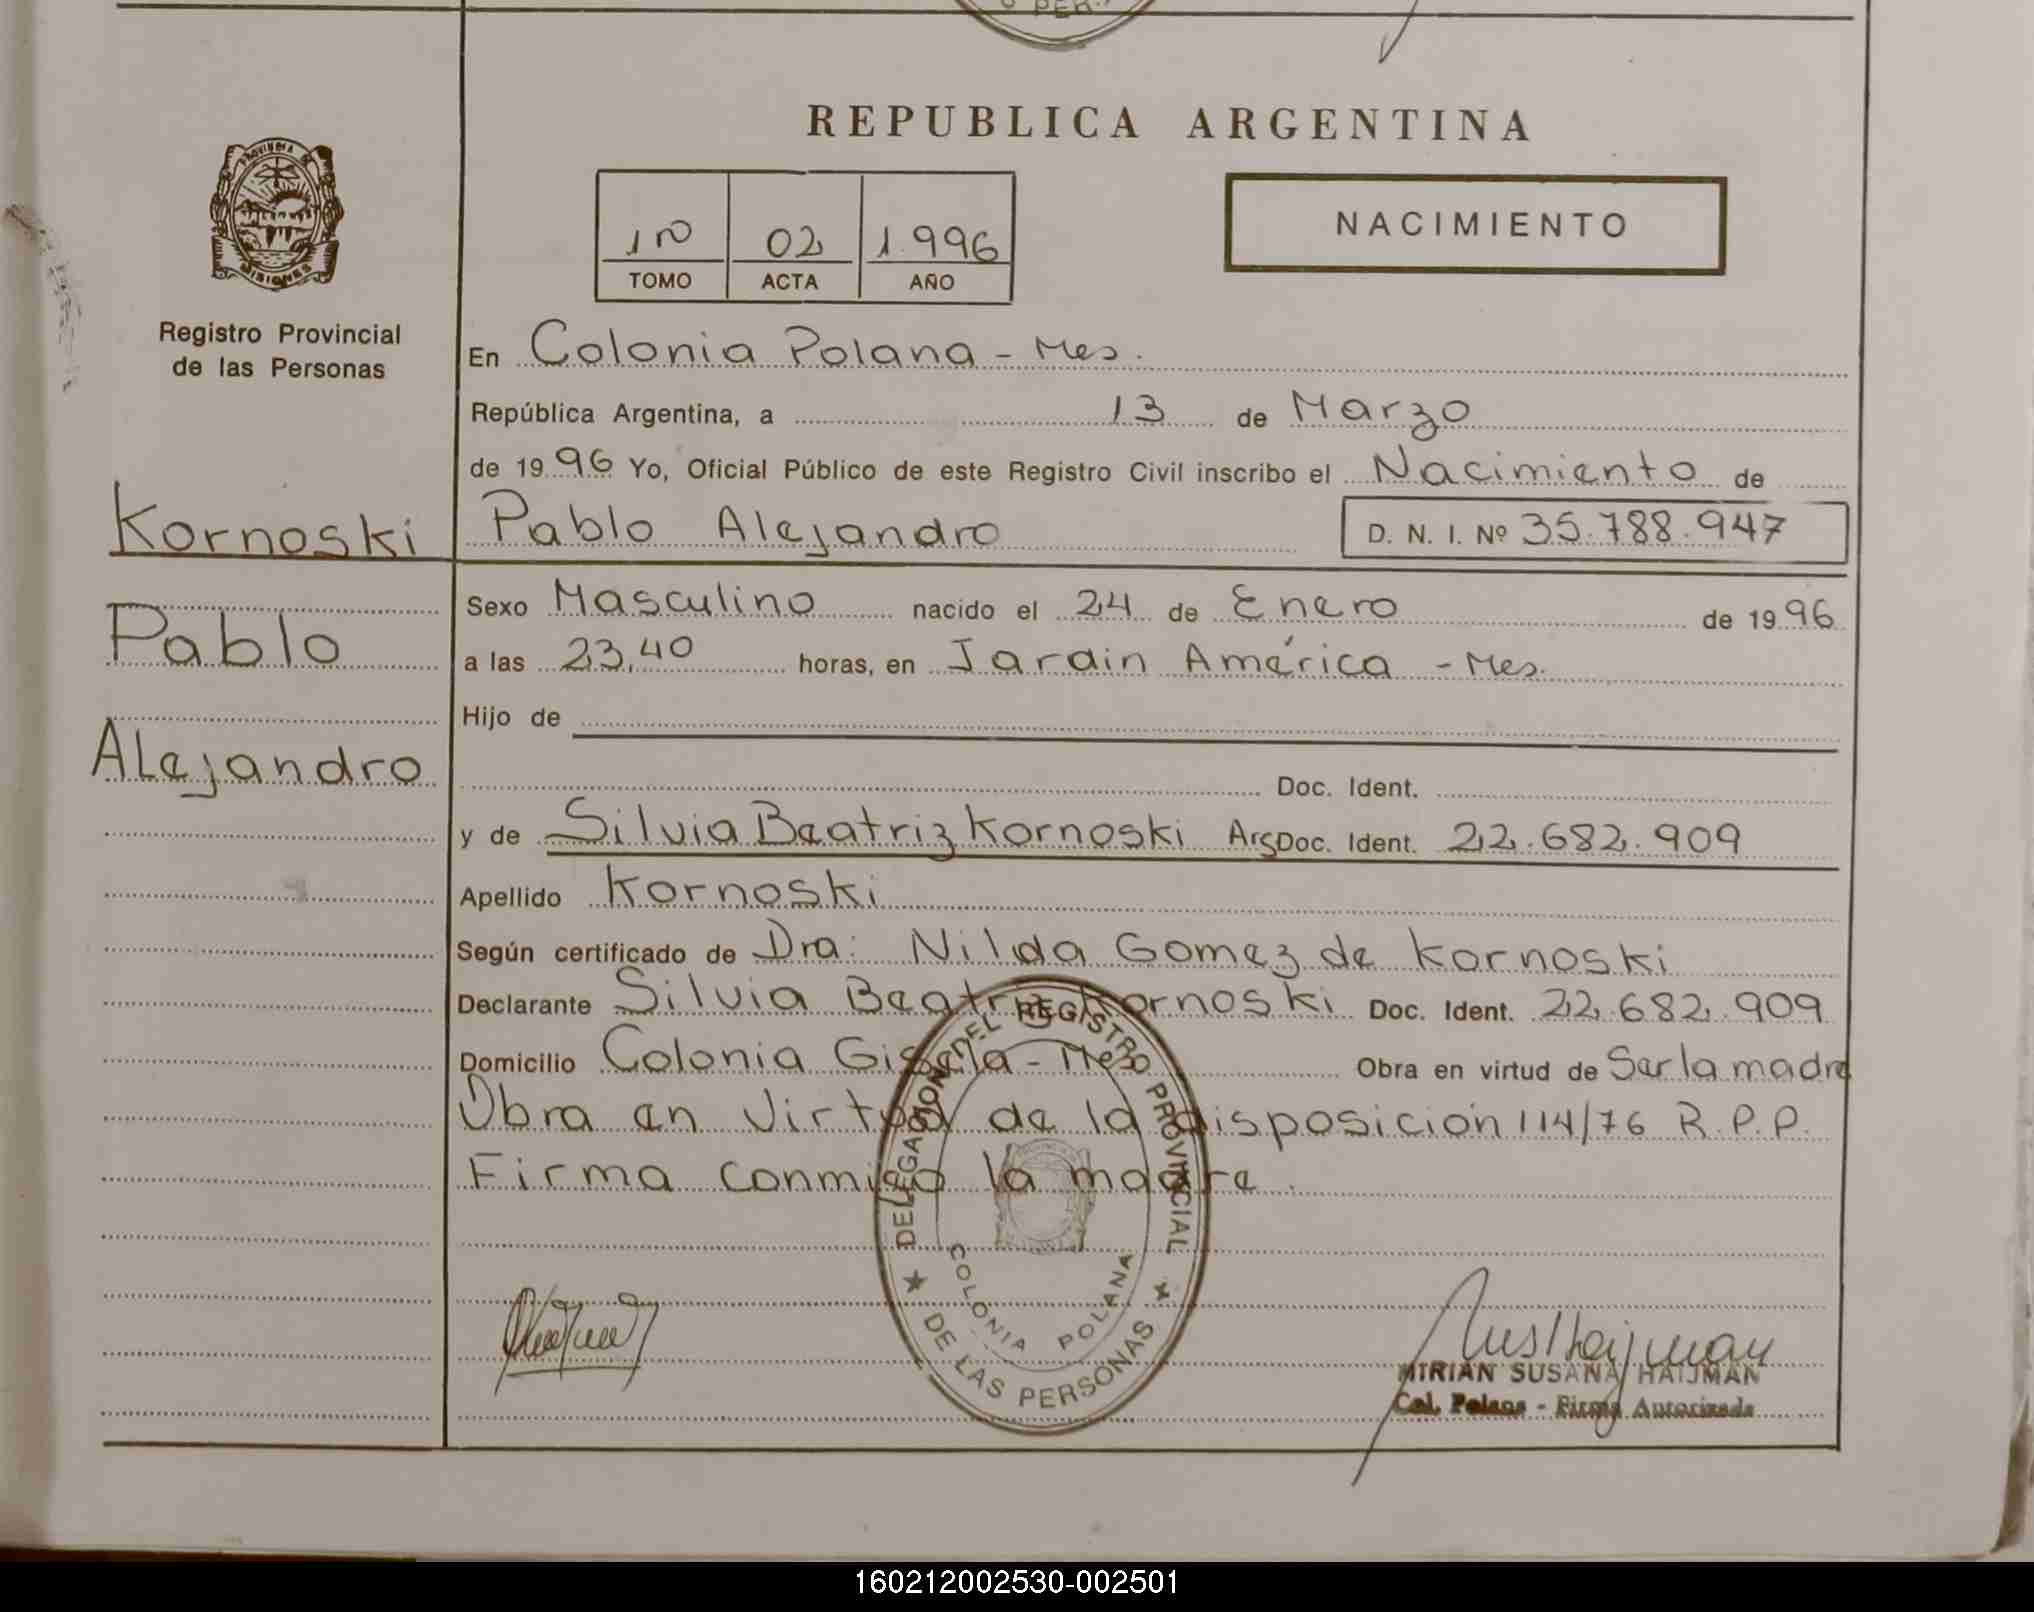 PER.
REPUBLICA ARGENTINA
PROVINCIA DE
MISIONES
Registro Provincial
de las Personas
1º 02 1.996
TOMO ACTA AÑO
NACIMIENTO
En Colonia Polana - Mes.
República Argentina, a 13 de Marzo
de 1996 Yo, Oficial Público de este Registro Civil inscribo el Nacimiento de
Kornoski
Pablo Alejandro D. N. I. Nº 35.788.947
Pablo
Alejandro
Sexo Masculino nacido el 24 de Enero de 1996
a las 23,40 horas, en Jardin América - Mes.
Hijo de
Doc. Ident.
y de Silvia Beatriz Kornoski Arg Doc. Ident. 22.682.909
Apellido Kornoski
Según certificado de Dra: Nilda Gomez de Kornoski
Declarante Silvia Beatriz Kornoski Doc. Ident. 22.682.909
Domicilio Colonia Gisela - Mes Obra en virtud de Ser la madre
Obra en Virtud de la disposición 114/76 R.P.P.
Firma conmigo la madre.
DELEGACION DEL REGISTRO PROVINCIAL
DE LAS PERSONAS
COLONIA POLANA
MIRIAN SUSANA HAIJMAN
Col. Polana - Firma Autorizada
160212002530-002501